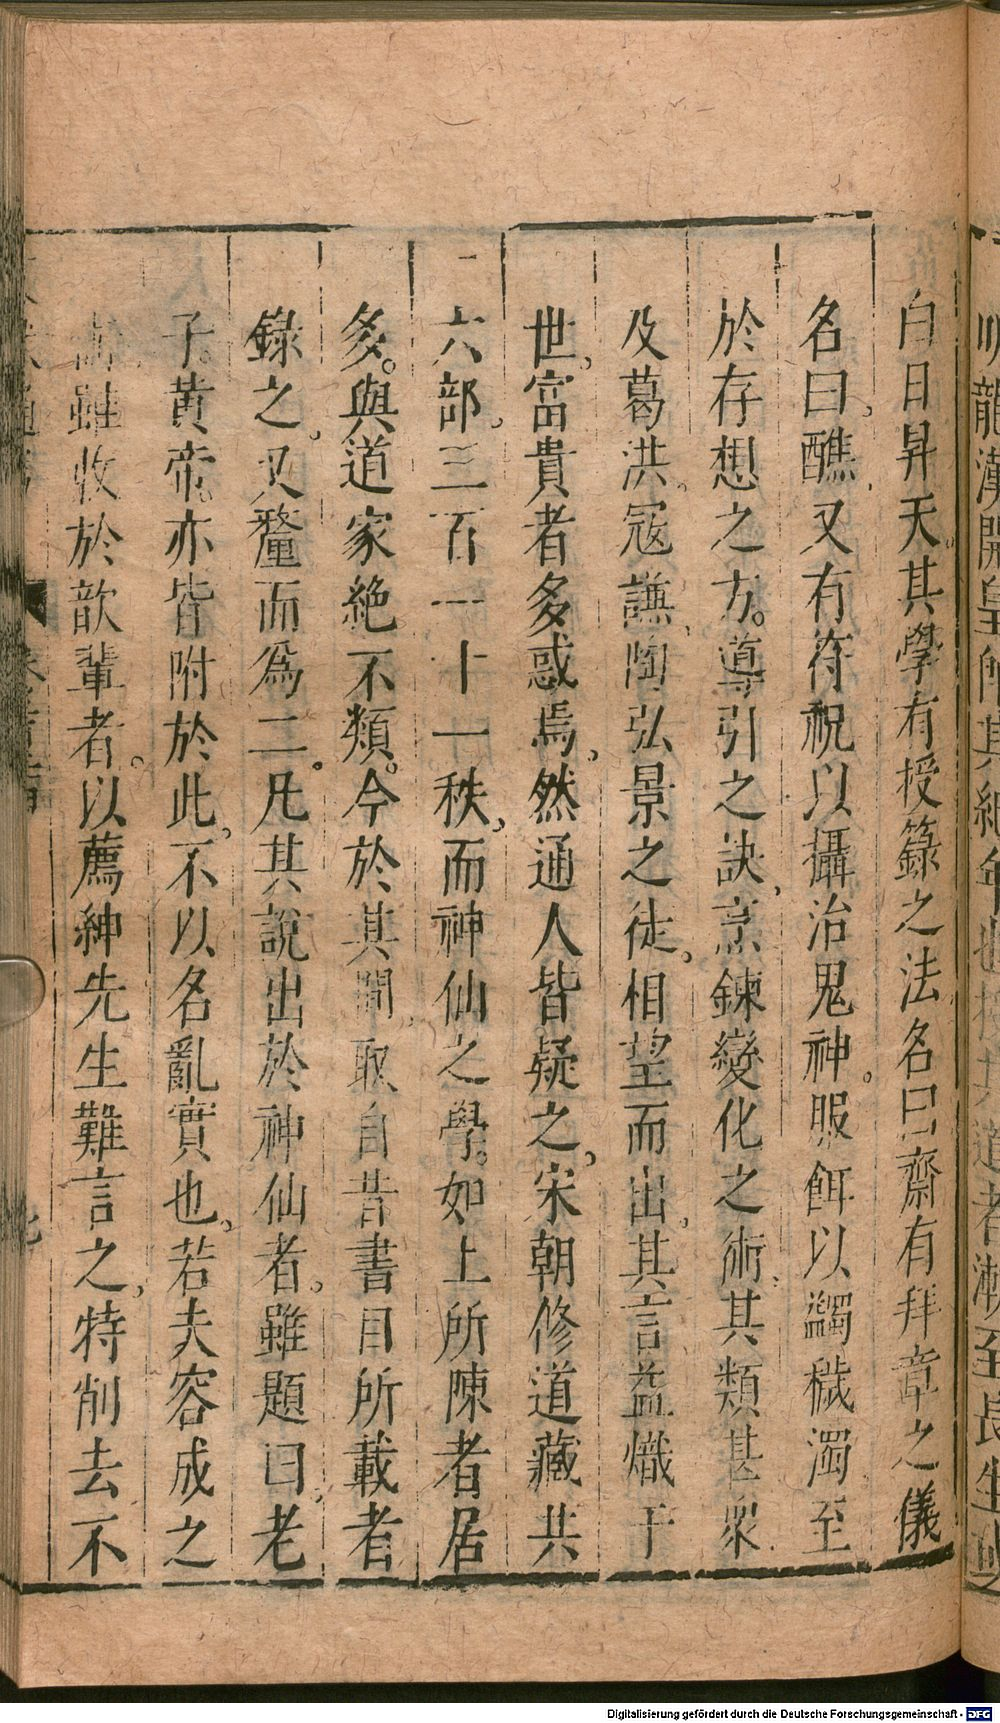 白日昇天其學有授籙之法名曰齋有拜章之儀
名曰醮又有符祝以攝治鬼神服餌以蠲穢濁至
於存想之方導引之訣烹鍊變化之術其類甚衆
及葛洪寇謙陶弘景之徒相望而出其言益熾于
世富貴者多惑焉然通人皆疑之宋朝修道藏共
六部三百一十一秩而神仙之學如上所陳者居
多與道家絕不類今於其間取自昔書目所載者
錄之又釐而爲二凡其說出於神仙者雖題曰老
子黃帝亦皆附於此不以名亂實也若夫容成之
術雖收於歆輩者以薦紳先生難言之特削去不
Digitalisierung gefördert durch die Deutsche Forschungsgemeinschaft - DFG